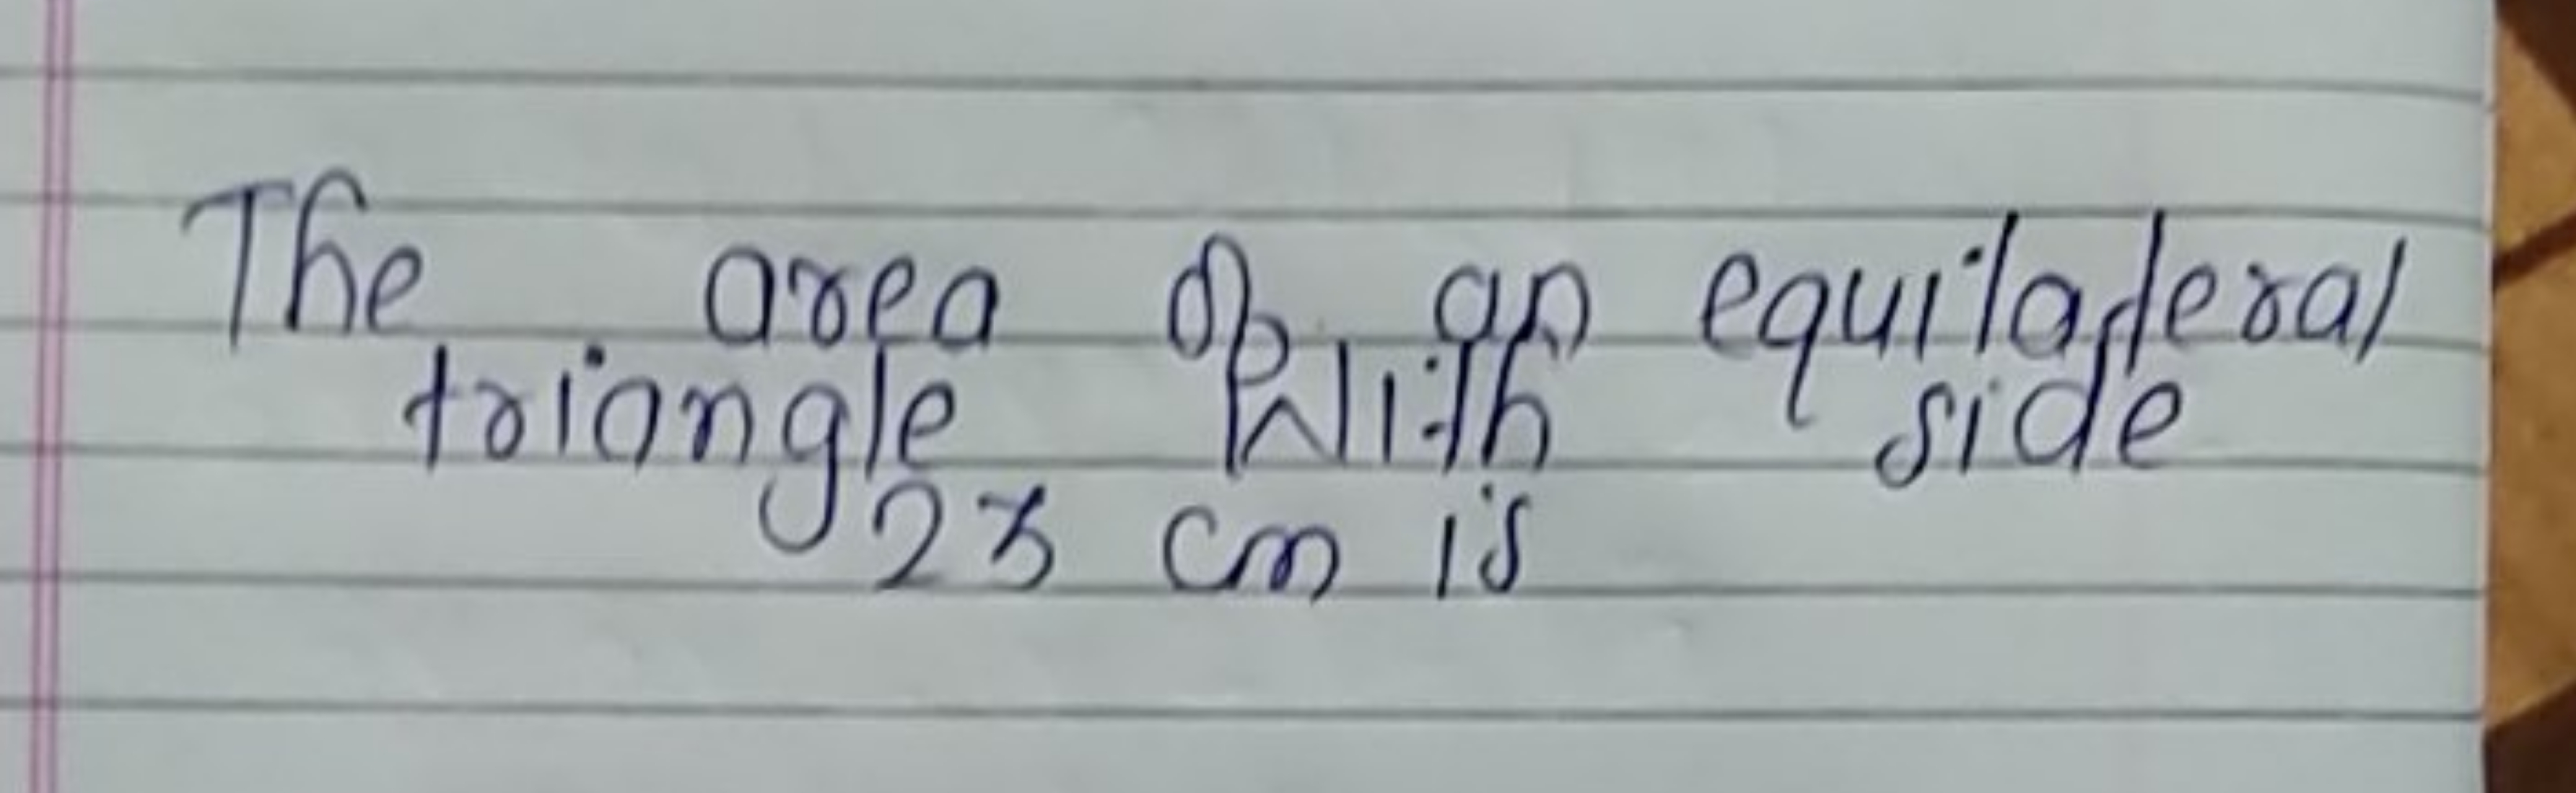 The area of an equilateral
triangle with side
23 cm is